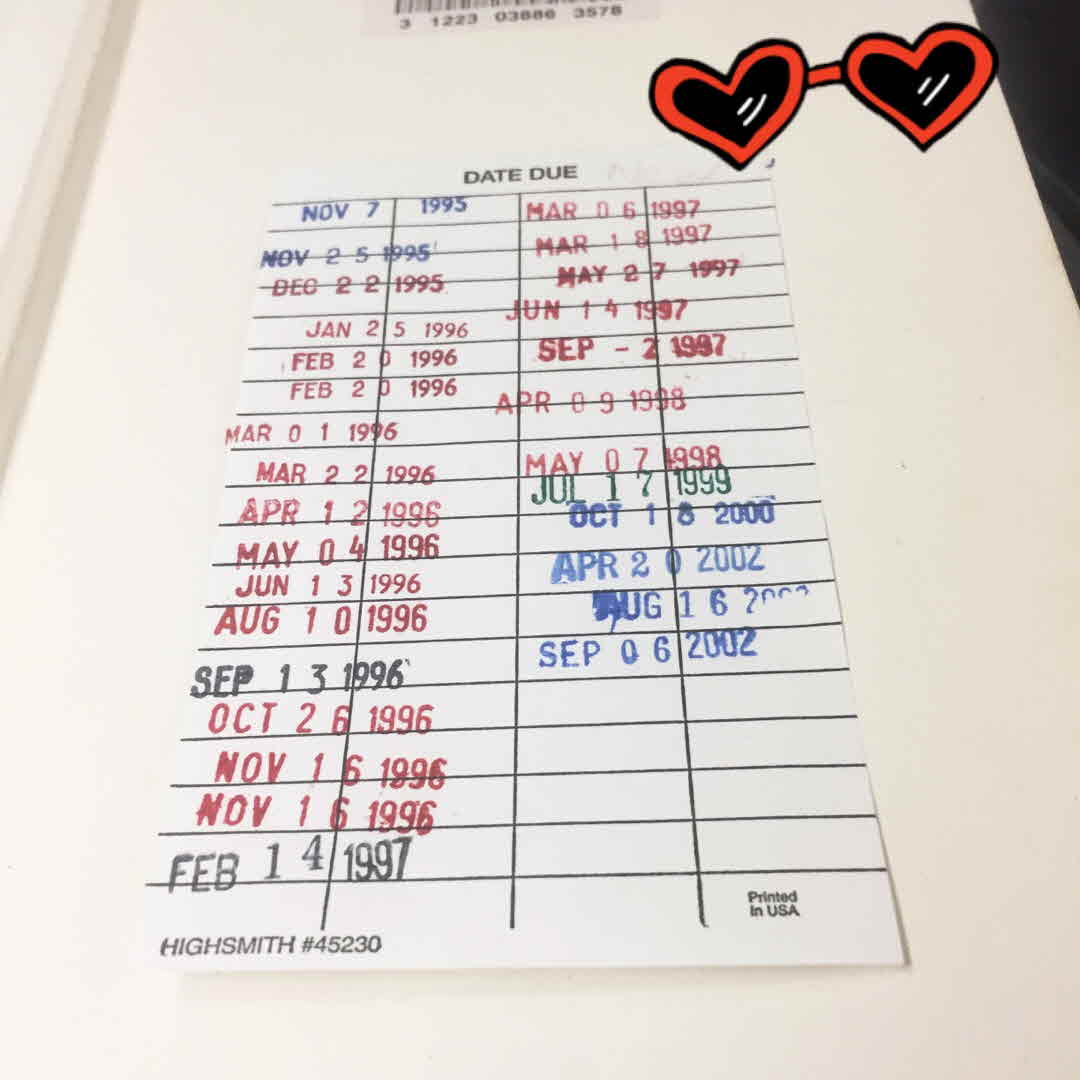 3 1223 03886 3578
DATE DUE
NOV 7 1995
NOV 25 1995
DEC 22 1995
JAN 25 1996
FEB 20 1996
FEB 20 1996
MAR 01 1996
MAR 22 1996
APR 12 1996
MAY 04 1996
JUN 13 1996
AUG 10 1996
SEP 13 1996
OCT 26 1996
NOV 16 1996
NOV 16 1996
FEB 14 1997
MAR 06 1997
MAR 18 1997
MAY 27 1997
JUN 14 1997
SEP - 2 1997
APR 09 1998
MAY 07 1998
JUL 17 1999
OCT 18 2000
APR 20 2002
AUG 16
SEP 06 2002
Printed
In USA
HIGHSMITH #45230